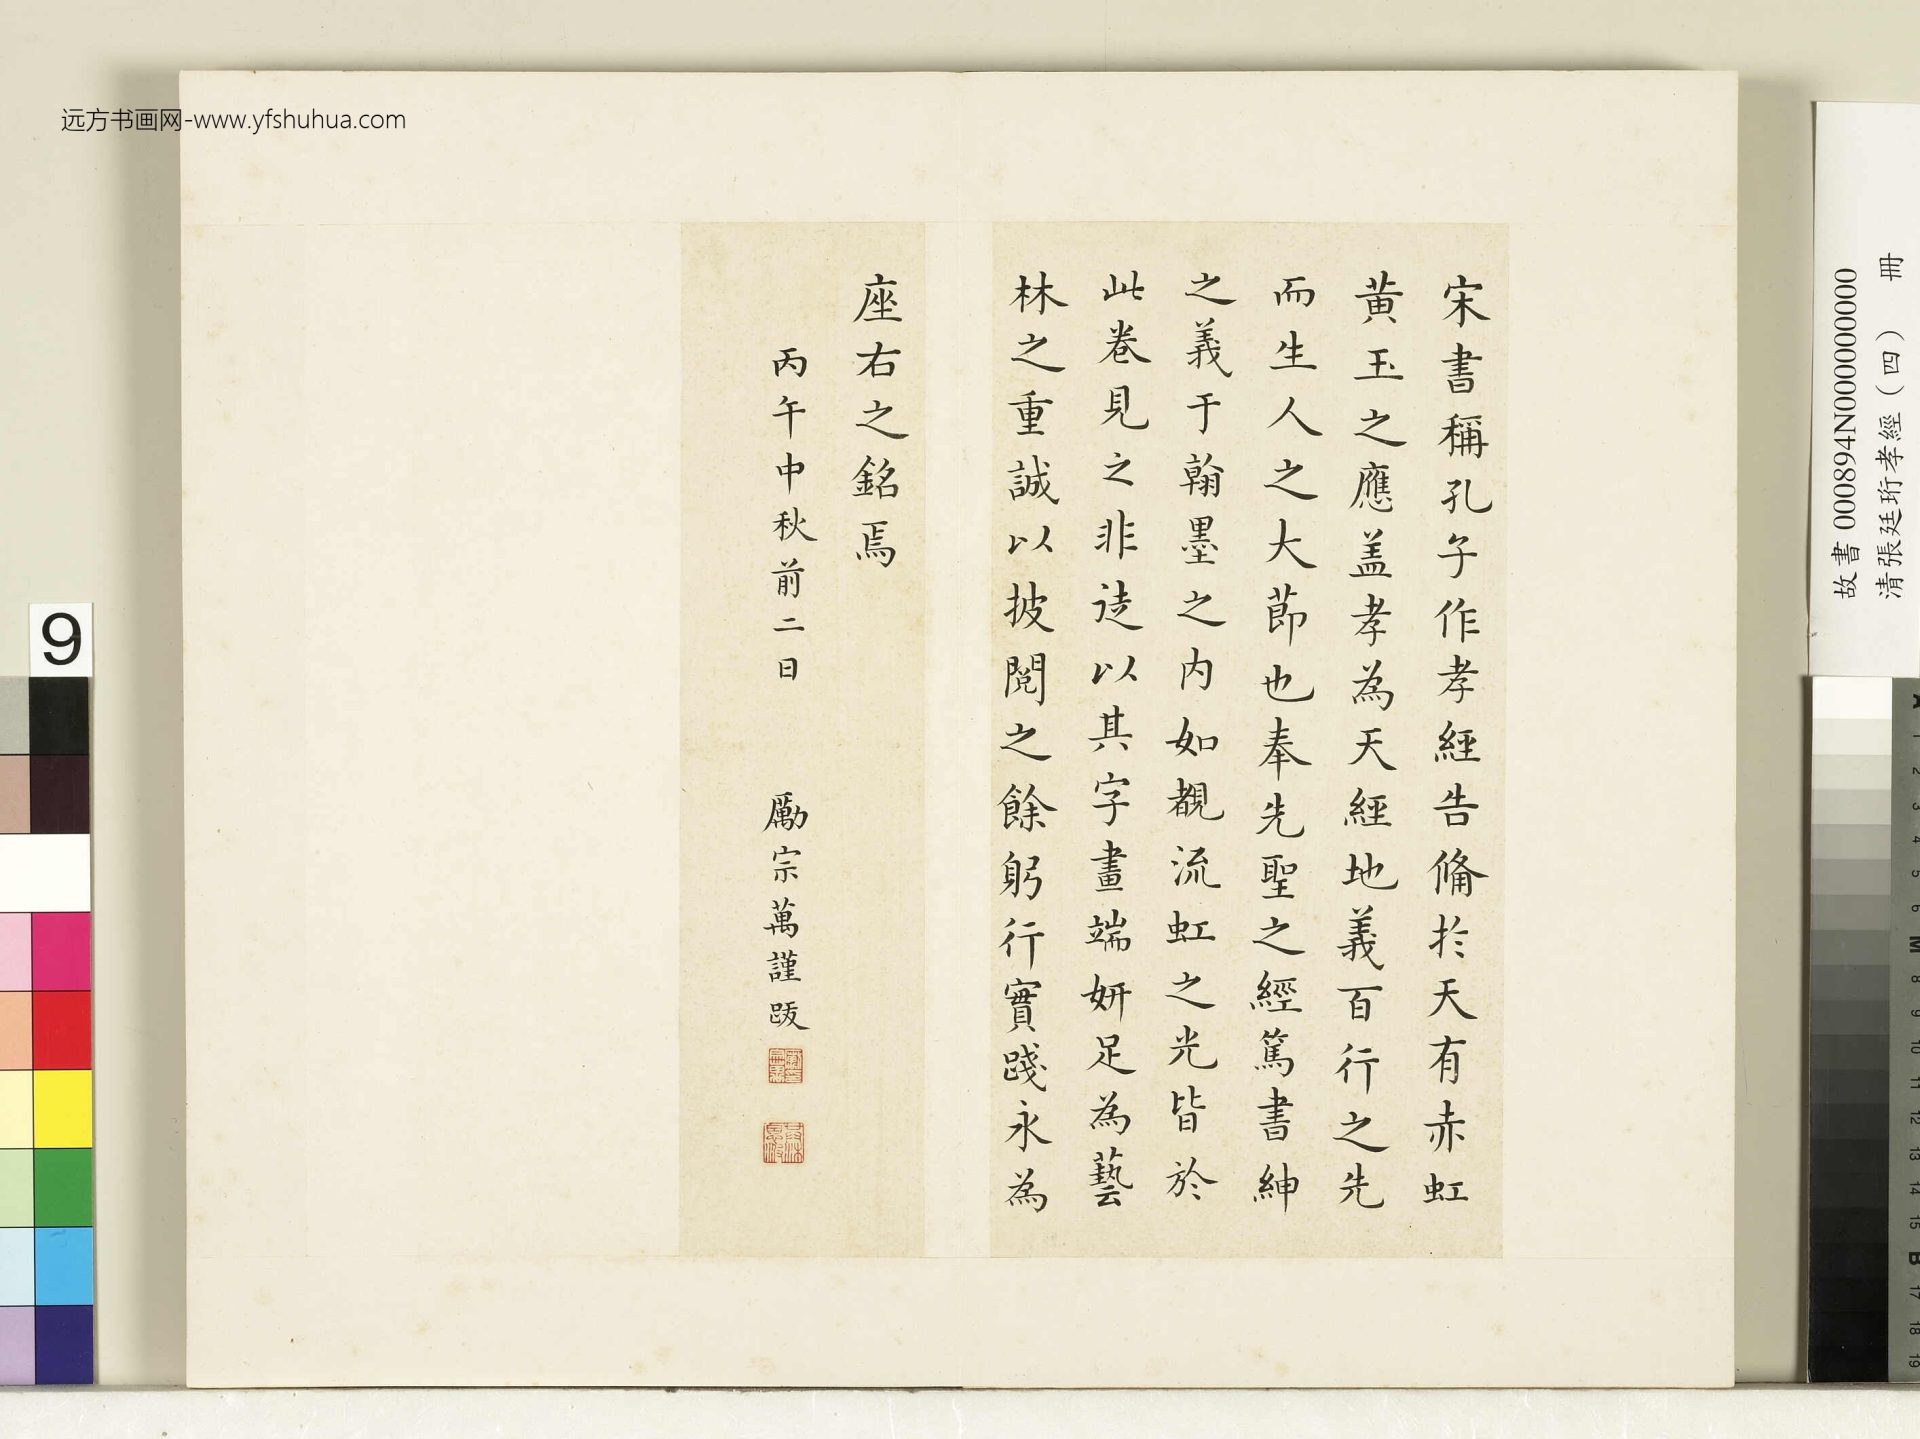 宋書稱孔子作孝經告備於天有赤虹
黃玉之應盖孝為天經地義百行之先
而生人之大節也奉先聖之經篤書紳
之義于翰墨之內如覩流虹之光皆於
此卷見之非徒以其字畫端妍足為藝
林之重誠以披閱之餘躬行實踐永為
座右之銘焉
丙午中秋前二日 勵宗萬謹跋
远方书画网-www.yfshuhua.com
故書 000894N000000000
清張廷珩孝經(四) 冊
9